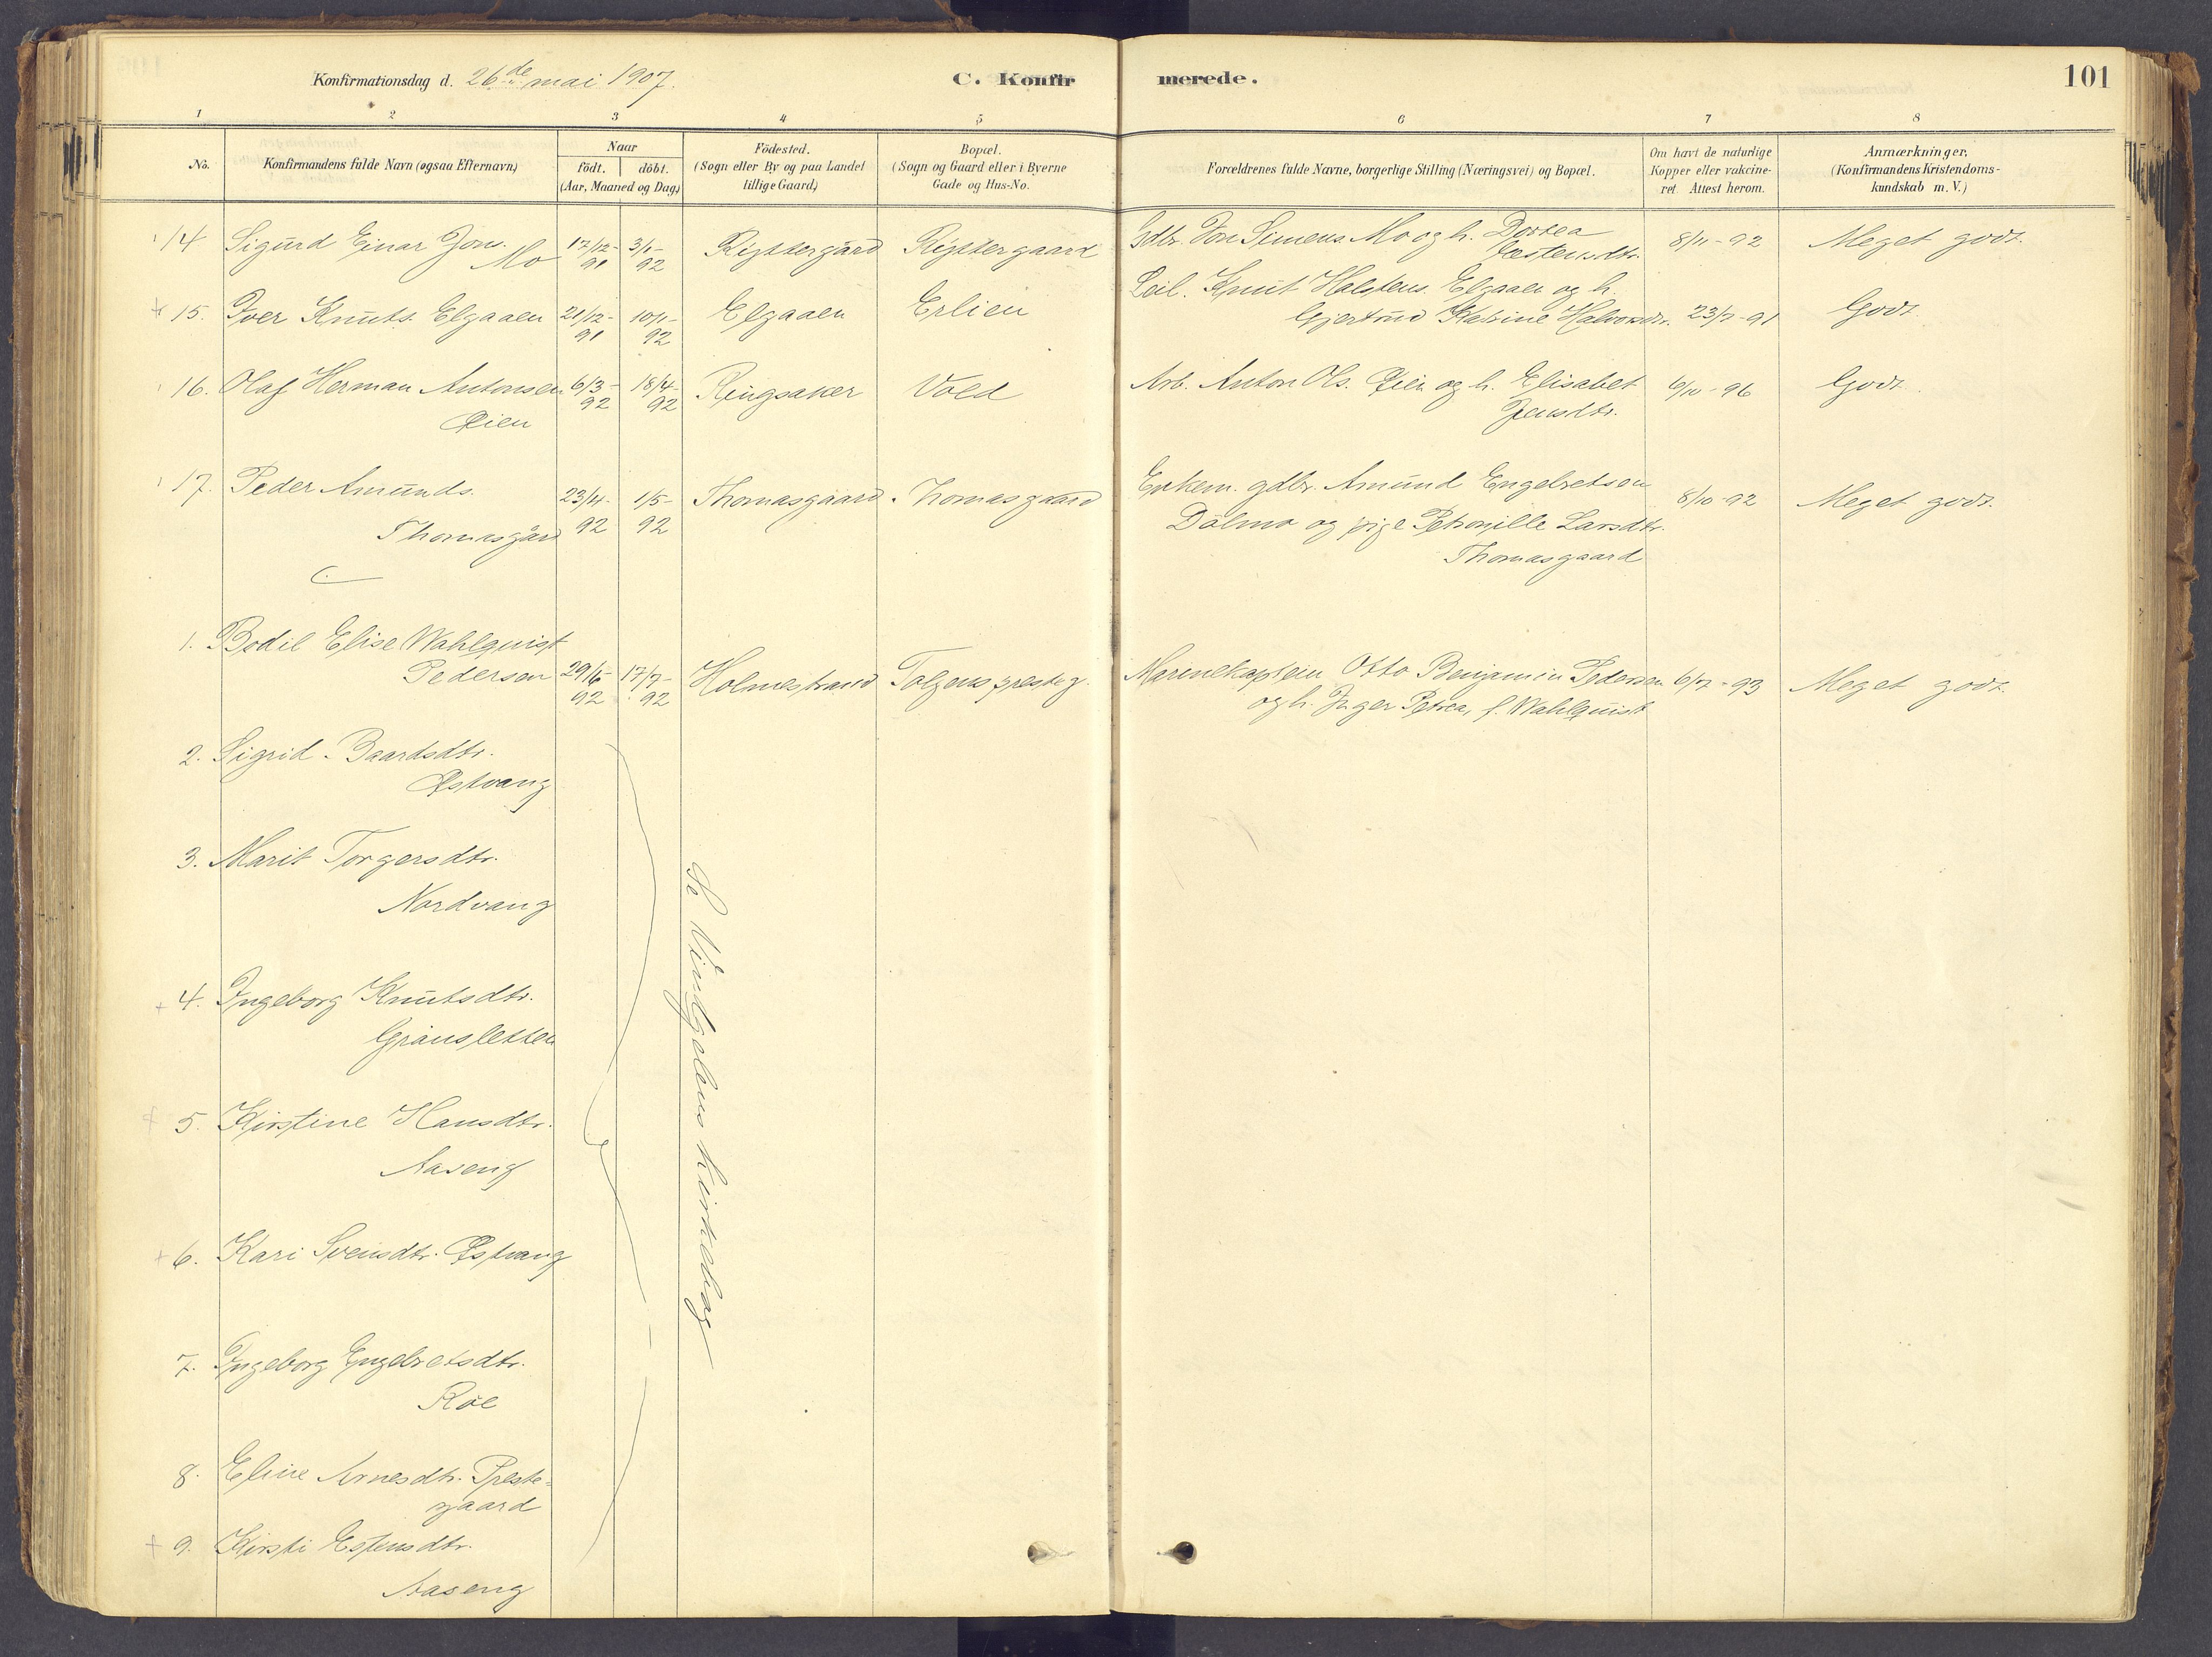 Konfirmationsdag d. 26de mai 1907.
C. Konfirmerede.
101
1 2 3 4 5 6 7 8
No.
Konfirmandens fulde Navn (ogsaa Efternavn)
Naar
födt. döbt.
(Aar, Maaned og Dag)
Födested.
(Sogn eller By og paa Landet
tillige Gaard)
Bopæl.
(Sogn og Gaard eller i Byerne
Gade og Hus-No.
Forældrenes fulde Navne, borgerlige Stilling (Næringsvei) og Bopæl.
Om havt de naturlige
Kopper eller vakcine-
ret. Attest herom.
Anmærkninger.
(Konfirmandens Kristendoms-
kundskab m. V.)
14 Sigurd Einar Jons.
Mo
17/12-91 3/1-92 Rigttergaard Rigttergaard
Gdbr. Jon Simens. Mo og h. Dortea
Estensdtr.
8/11-92 Meget godt.
15. Iver Knuts. Elgaaen 21/12-91 10/1-92 Elgaaen Erlien
Leil. Knut Halstens. Elgaaen og h.
Gjertrud Katrine Halvorsdtr. 23/7-91 Godt
16. Olaf Herman Antonsen
Øien
6/3-92 18/4-92 Ringsaker Vold
Arb. Anton Ols. Øien og h. Elisabet
Jensdtr.
6/10-96 Godt.
17. Peder Amunds.
Thomasgård
23/4-92 1/5-92 Thomasgaard Thomasgaard
Enkem. gdbr. Amund Engebretsen
Dalmo og pige Petronille Larsdtr.
Thomasgaard
8/10-92 Meget godt.
1. Bodil Elise Wahlquist
Pedersen
29/6-92 17/7-92 Holmestrand Tolgens presteg.
Marinekaptein Otto Benjamin Pedersen
og h. Inger Petrea, f. Wahlquist
6/7-93 Meget godt.
2. Sigrid Baardsdtr.
Østvang
3. Marit Torgersdtr.
Nordvang
4. Ingeborg Knutsdtr.
Grånsletten
5. Kirstine Hansdtr.
Aaseng
6. Kari Svensdtr. Østvang
7. Ingeborg Engebretsdtr.
Røe
8. Eline Arnesdtr. Preste-
gaard
9. Kirsti Estensdtr.
Aaseng
Se Vingelens kirkebog